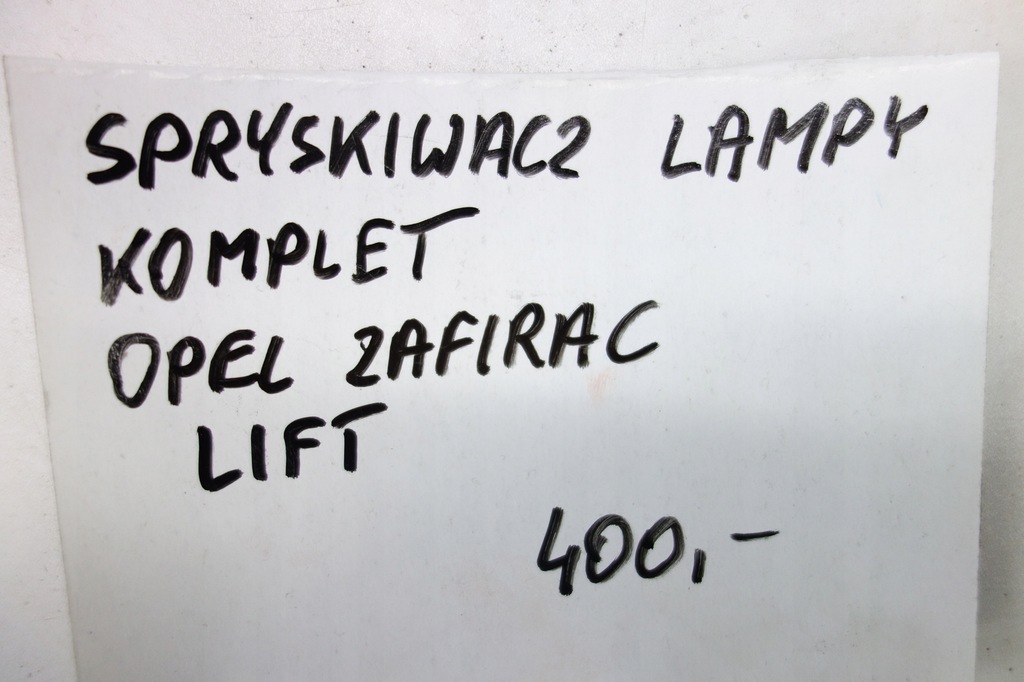 SPRYSKIWACZ LAMPY
KOMPLET
OPEL ZAFIRA C
LIFT
400,-